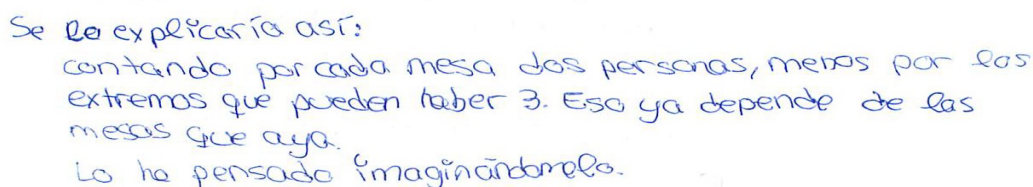 Se lo explicaría así:
contando por cada mesa dos personas, menos por los
extremos que pueden haber 3. Eso ya depende de las
mesas que aya.
Lo he pensado imaginándomelo.